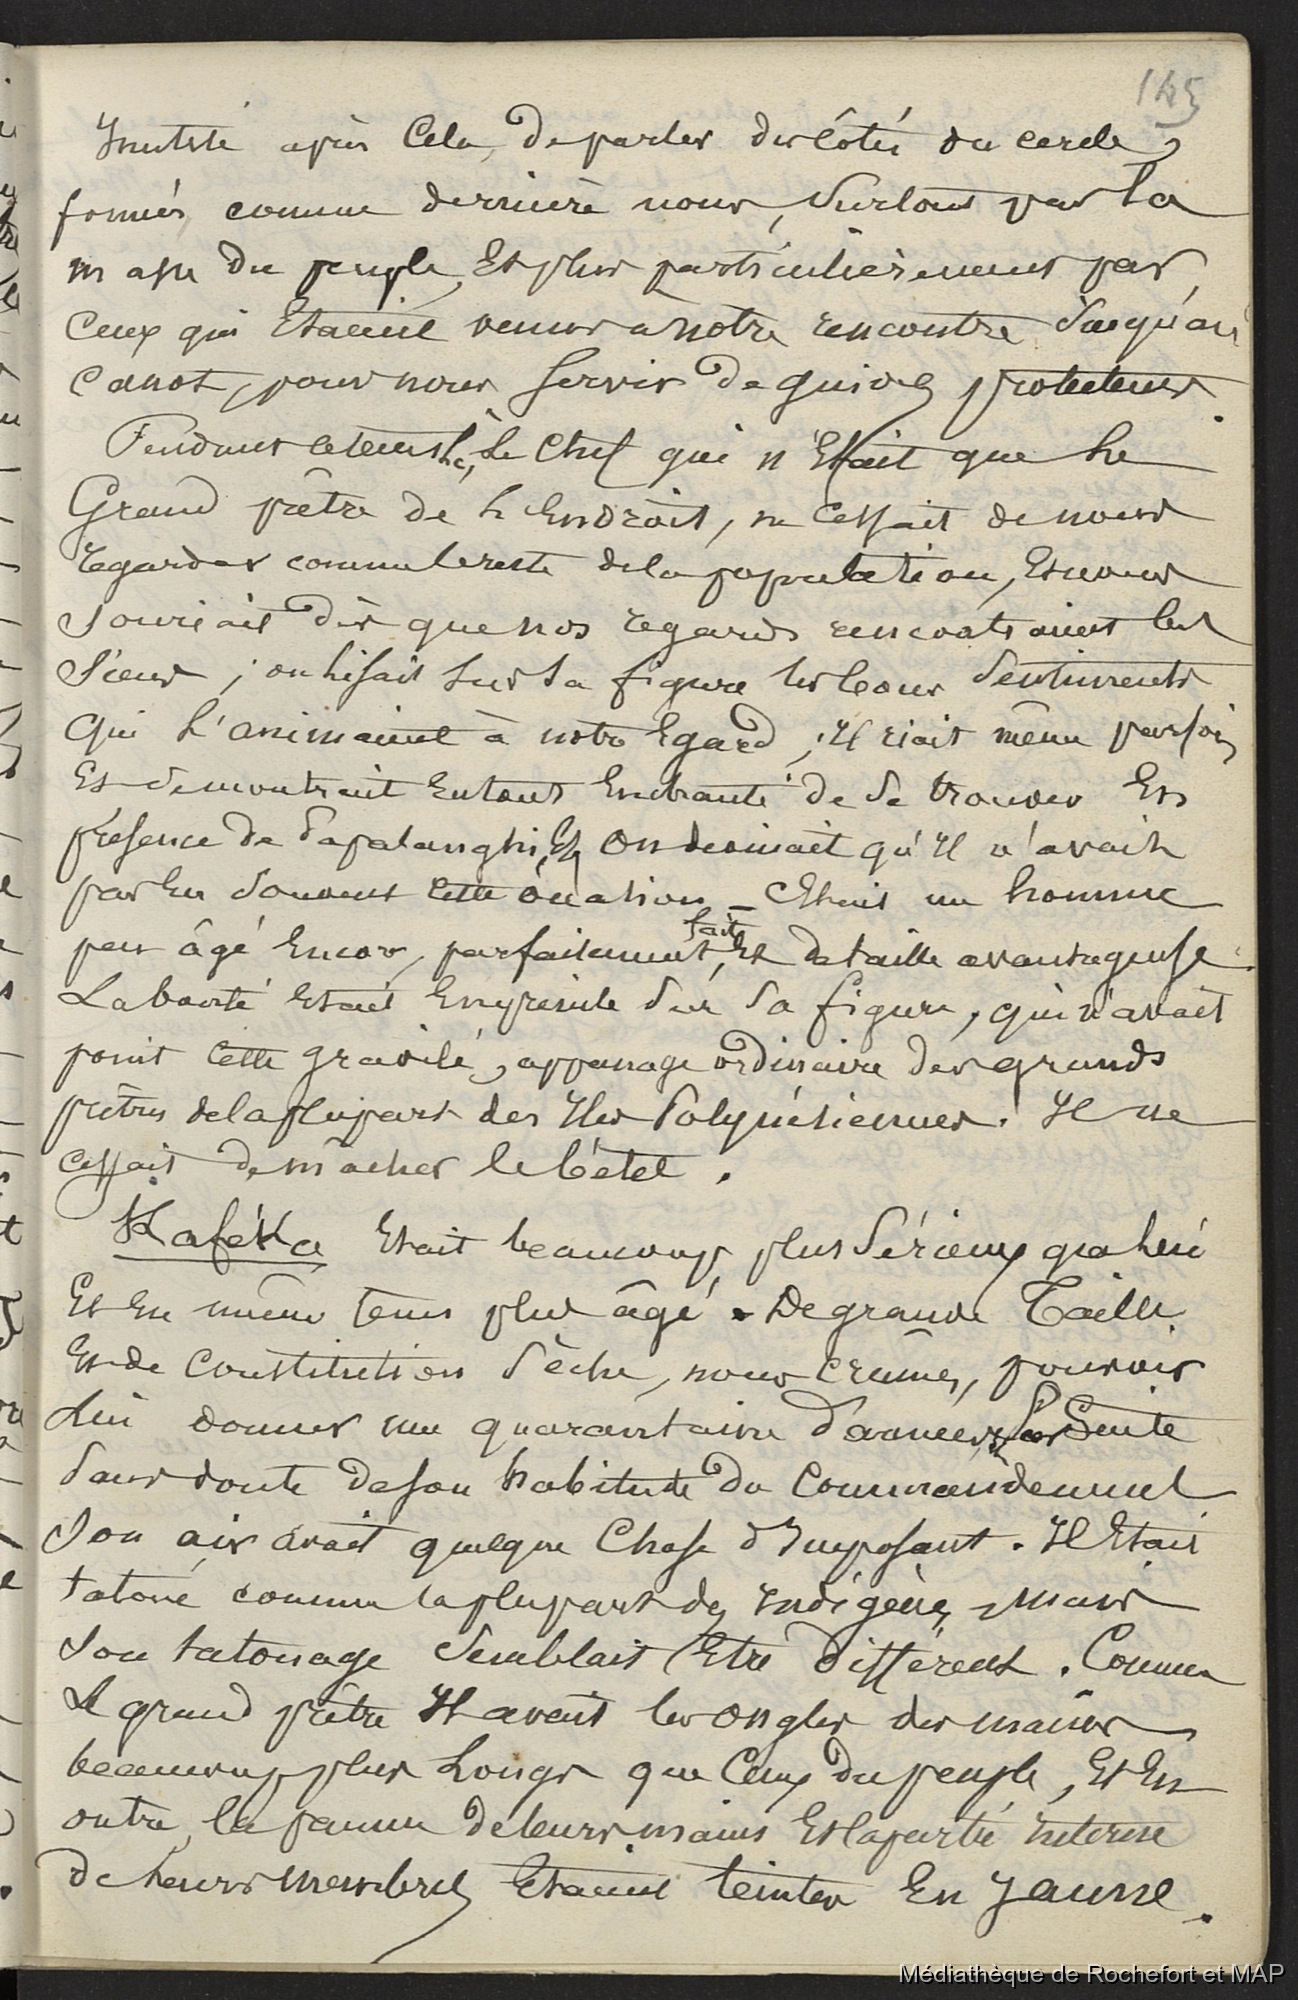 145
Inutile après Cela, de parler des côtés du cercle,
formés, comme derrière nous, Surtout par la
masse du peuple, Et plus particulièrement par
Ceux qui Etaient venus a notre rencontre Jusqu'au
Canot, pour nous Servir de guides protecteurs.
Pendant ce tems là, Le Chef qui n'Etait que Le
Grand prêtre de L'Endroit, ne Cessait de nous
regarder comme le reste de la population, Et nous
Souriait dès que nos regards rencontraient les
Siens ; on Lisait Sur Sa figure les bons Sentiments
Qui L'animaient à notre Egard, Il riait même parfois
Et Se montrait Entout Enchanté de Se trouver En
présence de Papalanghi, Et On devinait qu'Il n'avait
pas Eu Souvent cette occasion – C'Etait un homme
peu âgé Encor, parfaitement fait, Et de taille avantageuse.
La bonté Etait Empreinte Sur Sa figure, qui n'avait
point cette gravité, appanage ordinaire des grands
prêtres de la plupart des Iles Polynésiennes. Il ne
Cessait de mâcher le bétel.
Kaféka Etait beaucoup plus Sérieux que Lui
Et En même tems plus âgé. De grande Taille
Et de Constitution Sèche, nous crûmes, pouvoir
Lui donner une quarantaine d'années, Par Suite
Sans doute de Son habitude du Commandement
Son air avait quelque Chose d'Imposant. Il Etait
tatoué comme la plupart des Indigènes, Mais
Son tatouage Semblait Etre différent. Comme
Le grand prêtre Il avait les Ongles des mains
beaucoup plus Longs que Ceux du peuple, Et En
outre, la paume de leurs mains Et la partie interne
de Leurs membres Etaient teintes En Jaune.
Médiathèque de Rochefort et MAP